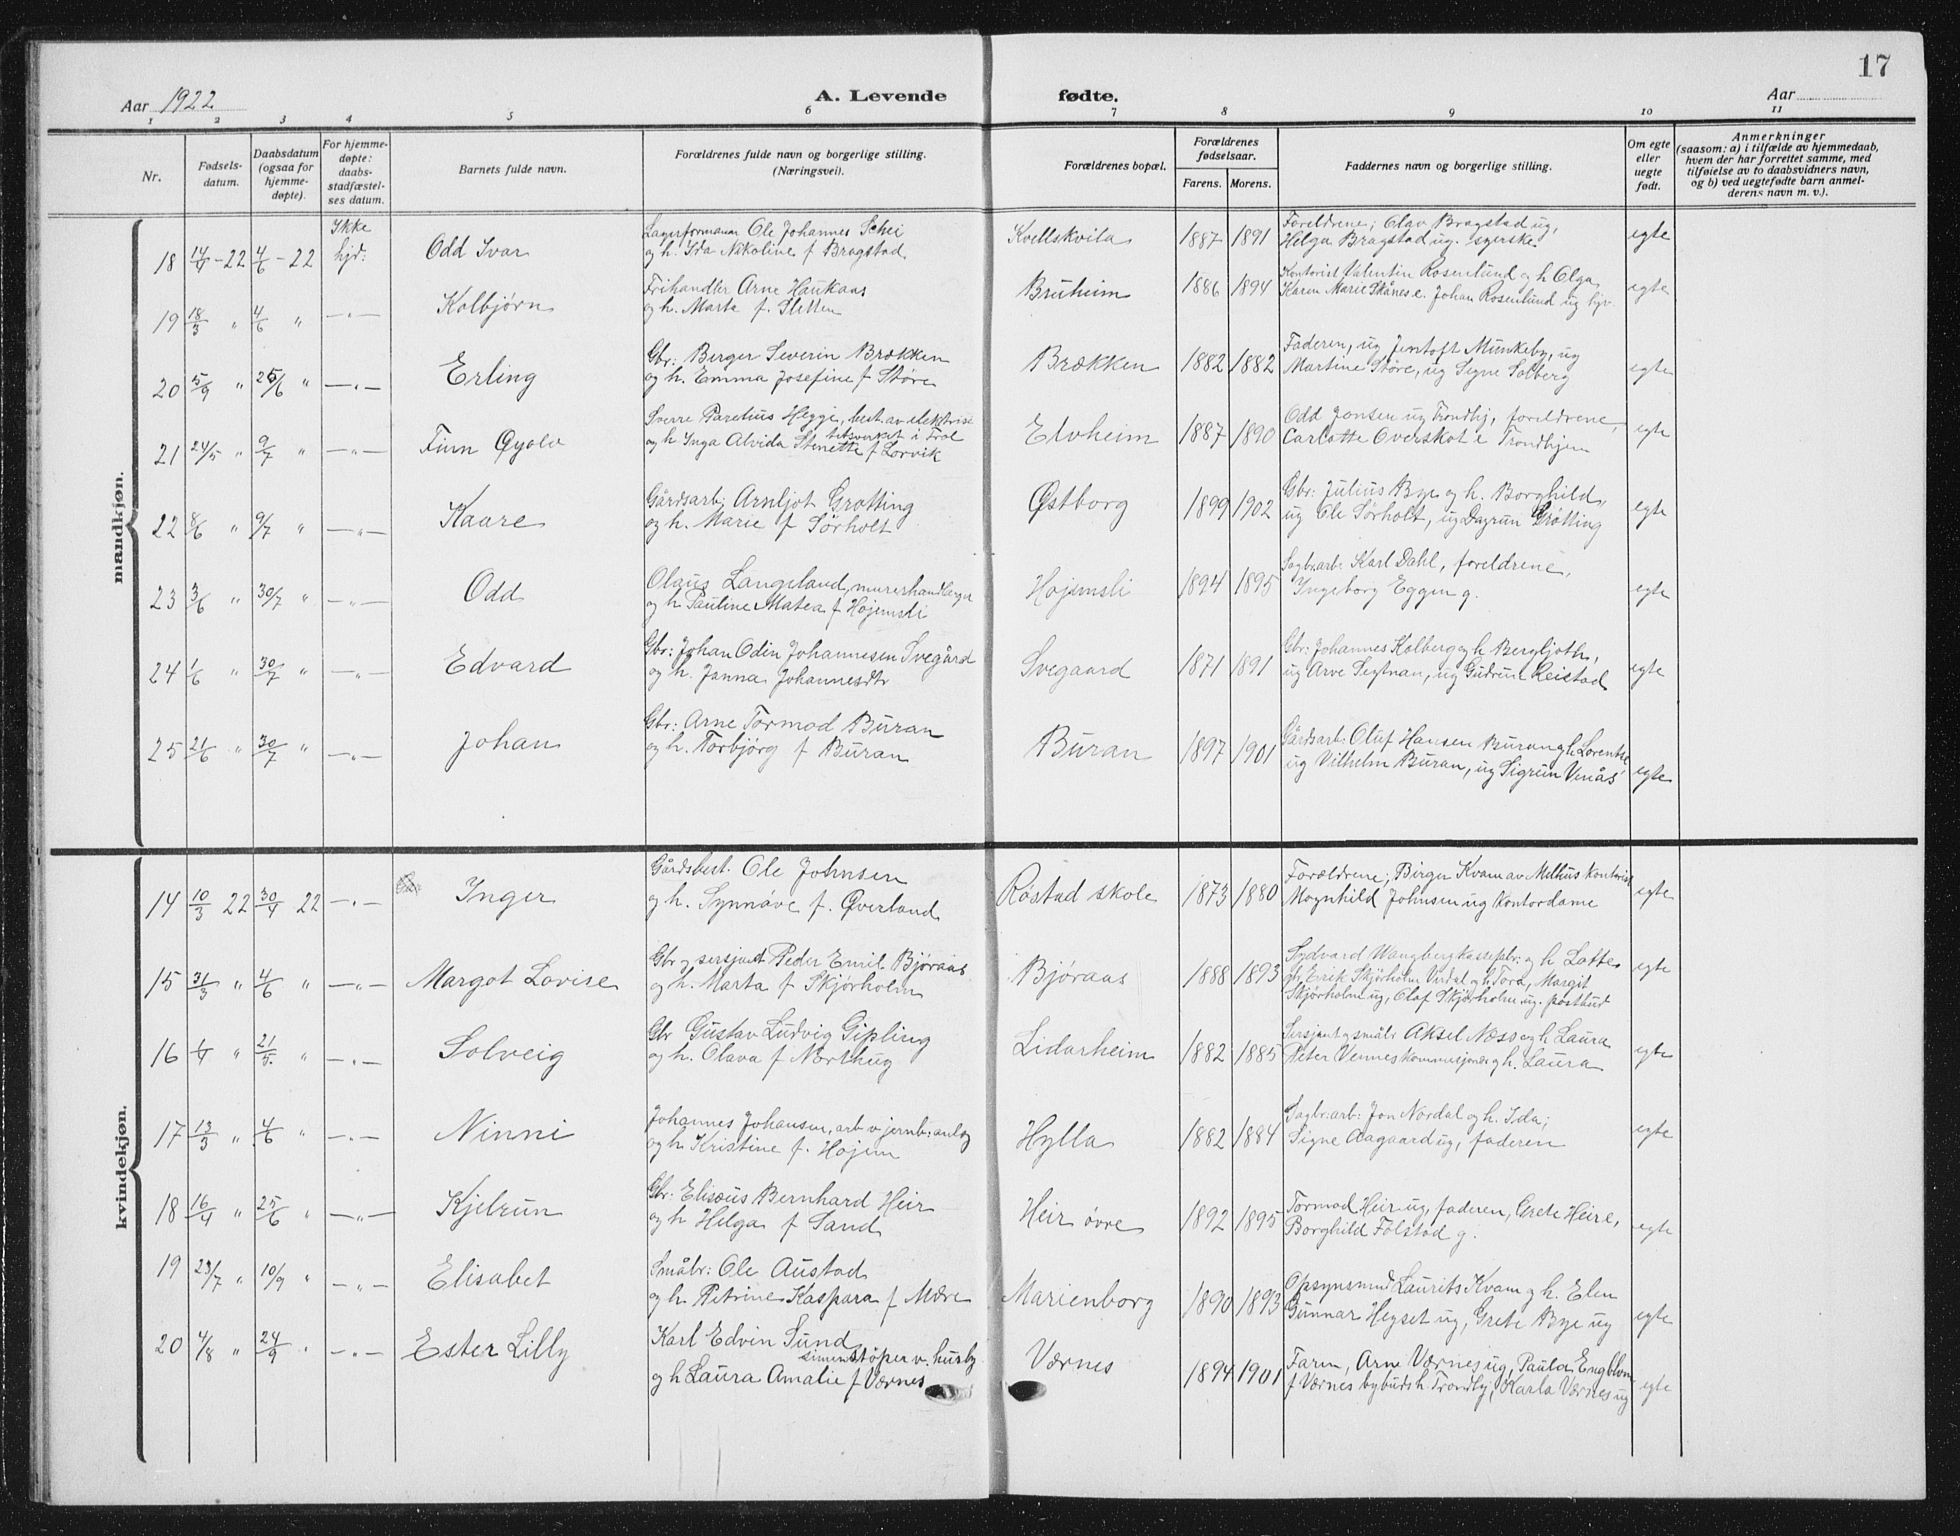 17
Aar 1922 A. Levende fødte. Aar
1 2 3 4 5 6 7 8 9 10 11
Nr. Fødsels-datum. Daabsdatum (ogsaa for hjemme-døpte). For hjemme-døpte: daabs-stadfæstel-ses datum. Barnets fulde navn. Forældrenes fulde navn og borgerlige stilling. (Næringsvei). Forældrenes bopæl. Forældrenes fødselsaar. Farens. Morens. Faddernes navn og borgerlige stilling. Om egte eller uegte født. Anmerkninger (saasom: a) i tilfælde av hjemmedaab, hvem der har forrettet samme, med tilføielse av to daabsvidners navn, og b) ved uegtefødte barn anmel-derens navn m. v.).
mandkjøn.
18 14/4 - 22 4/6 - 22 Ikke hjd. Odd Ivar Lagerformann Ole Johannes Schei og h. Ida Nikoline f Bragstad Kvellskvila 1887 1891 Foreldrene; Olav Bragstad ug, Helga Bragstad ug. syerske. egte
19 18/3 " 4/6 " -"- Kolbjørn Frihandler Arne Haukaas og h. Marte f. Sletten Bruheim 1886 1894 Kontorist Valentin Rosenlund og h Olga, Karen Marie Skånes e. Johan Rosenlund ug egte
20 " 25/6 " -"- Erling Gbr: Berger Severin Brækken og h. Emma Josefine f Støre Brækken 1882 1882 Faderen, ug Jentoft Munkeby, ug Martine Støre, ug Signe Solberg egte
21 24/5 " 9/7 " -"- Finn Øyolv Sverre Paretius Hegge, best. av elektrisitetsverket i og h Inga Alvida Stenette f Lorvik Elvheim 1887 1890 Odd Jansen ug Trondhj, foreldrene, Carlotte Overskot e Trondhjem egte
22 8/6 " 9/7 " -"- Kaare Gårdsarb; Arnljot Grøtting og h. Marie f Sørholt Østborg 1899 1902 Gbr: Julius Bye og h. Borghild, ug Ole Sørholt, ug Dagrun Grøtting egte
23 3/6 " 30/7 " -"- Odd Olaus Langeland, murerhandlanger og h Pauline Matea f Hojemsli Hojemsli 1894 1895 Sagbr.arb. Karl Dahl, foreldrene, Ingeborg Eggen g. egte
24 1/6 " 30/7 " -"- Edvard Gbr: Johan Odin Johannesen Svegård og h. Janna Johannesdtr Svegaard 1871 1891 Gbr: Johannes Kolberg og h Bergljoth, ug Arve Segtnan, ug Gudrun Reistad egte
25 21/6 " 30/7 " -"- Johan Gbr: Arne Tormod Buran og h. Torbjørg f Buran Buran 1897 1901 Gårdsarb: Oluf Hansen Buran g h Lorentse ug Vilhelm Buran, ug Sigrun Venås egte
kvindekjøn.
14 10/3 22 30/4 22 -"- Inger Gårdsbest. Ole Johnsen og h. Synnøve f. Øverland Røstad skole 1873 1880 Forældrene; Birger Kvam av Melhus kontorist Magnhild Johnsen ug kontordame egte
15 31/3 " 4/6 " -"- Margot Lovise Gbr g sersjant Peder Emil Bjøraas og h. Marta f Skjørholm Bjøraas 1888 1893 Sydvard Wangberg kassepbr: og h Lotte, Erik Skjørholm Virdal og h Tora, Margit Skjørholm ug, Olaf Skjørholm ug. postbud egte
16 1/4 " 21/5 " -"- Solveig Gbr Gustav Ludvig Gipling og h. Olava f Norlhug Lidarheim 1882 1885 Sersjant g småbr Aksel Næss og h Laura Peter Vennes kommisjonær g h. Laura egte
17 13/3 " 4/6 " -"- Ninni Johannes Johansen, arb v jernb: anlæg og h Kristine f. Hojem Hylla 1882 1884 Sagbr: arb: Jon Nordal og h. Ida; Signe Aagaard ug, faderen egte
18 16/4 " 25/6 " -"- Kjelrun Gbr: Elisæus Bernhard Heir og h Helga f Sand Heir øvre 1892 1895 Tormod Heir ug, faderen, Grete Heir e, Borghild Folstad g. egte
19 23/7 " 10/9 " -"- Elisabet Småbr: Ole Austad og h Petrine Kaspara f Mære Marienborg 1890 1893 Opsynsmd Laurits Kvam og h. Elen Gunnar Heyset ug, Grete Bye ug egte
20 4/8 " 24/9 " -"- Ester Lilly Karl Edvin Sund, simenstøper v. husby og h Laura Amalie f Værnes Værnes 1894 1901 Faren, Arne Værnes ug, Paula Engblom f Værnes bybudsh Trondhj, Karla Værnes ug egte